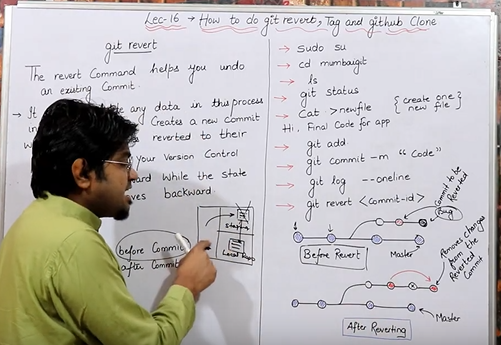 Lec-16 → How to do git revert, Tag and github Clone
git revert
The revert Command helps you undo
an existing Commit.
→ It any data in this process
in Creates a new commit
w reverted to their
your Version Control
ard while the state
ves backward.
before Commit
after Commit
Stag
Local Repo
→ sudo su
→ cd mumbaigit
→ ls
→ git status
→ Cat > newfile { create one
new file }
Hi, Final Code for app
→ git add .
→ git commit -m "Code"
→ git log --oneline
→ git revert <commit-id>
Commit to be
Reverted
Bug
Before Revert
Master
Removes changes
from the
Reverted
Commit
Master
After Reverting